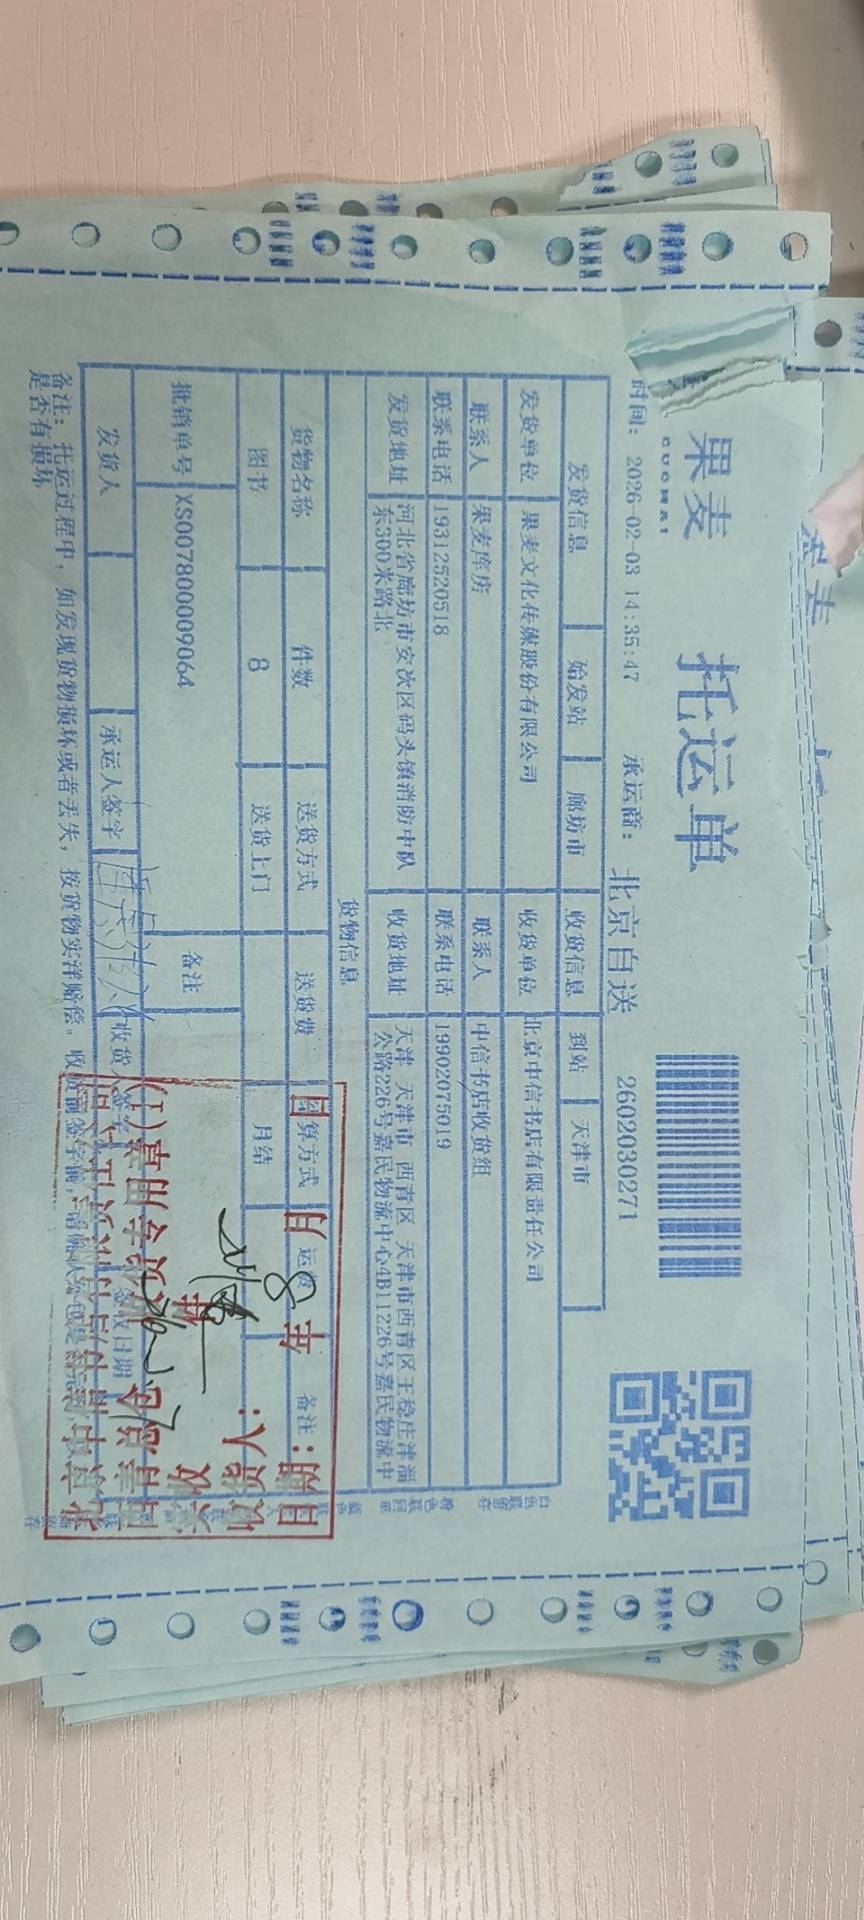 果麦 托运单
GUOMAI
时间: 2026-02-03 14:35:47 承运商: 北京自送 2602030271
发货信息 始发站 廊坊市 收货信息 到站 天津市
发货单位 果麦文化传媒股份有限公司 收货单位 北京中信书店有限责任公司
联系人 果麦库房 联系人 中信书店收货组
联系电话 19312520518 联系电话 19902075019
发货地址 河北省廊坊市安次区码头镇消防中队东300米路北 收货地址 天津 天津市 西青区 天津市西青区王稳庄津淄公路226号嘉民物流中心4B11226号嘉民物流中
货物信息
货物名称 件数 送货方式 送货费 结算方式 运费 备注
图书 8 送货上门 月结
批销单号 XS007800009064 备注
发货人 承运人签字 收货人签字 签收日期
备注: 托运过程中, 如发现货物损坏或者丢失, 按货物实洋赔偿。收货前签字前, 请确认
是否有损坏
北京中信书店有限责任公司
西青总仓 收货专用章(1)
实收 件
收货人:
日期: 年 月 日